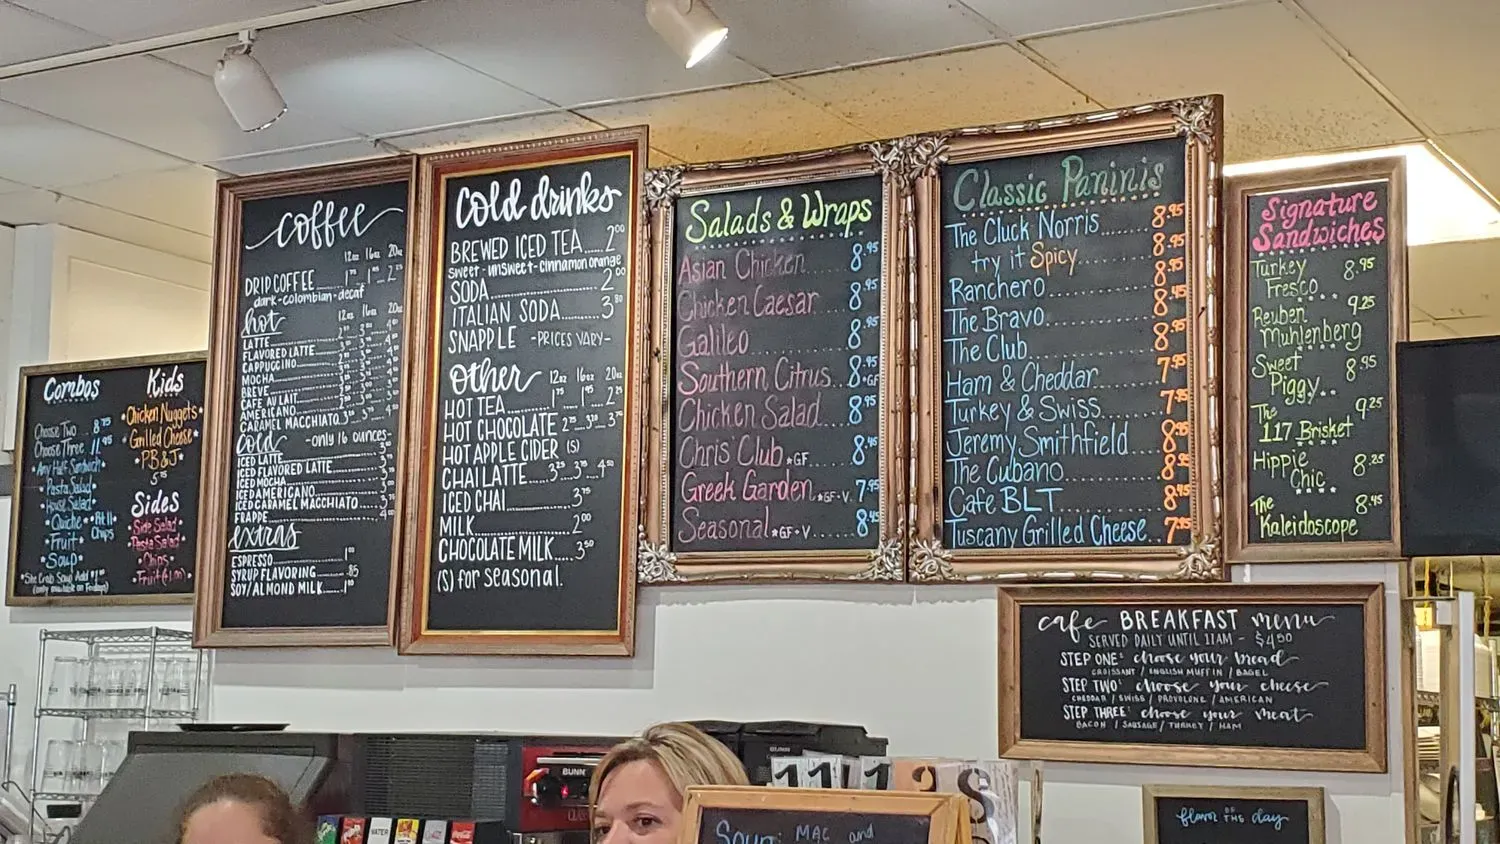 Combos
Choose Two 8.75
Choose Three 11.95
• Any Half Sandwich
• Pasta Salad •
• House Salad •
• Quiche •
• Fruit •
• Soup •
Chips
Kids
• Chicken Nuggets •
• Grilled Cheese •
• PB & J •
Sides
Side Salad
Pasta Salad
• Chips •
coffee
12oz 16oz 20oz
DRIP COFFEE
dark - colombian - decaf
hot 12oz 16oz 20oz
LATTE
FLAVORED LATTE
CAPPUCCINO
MOCHA
BREVE
CAFE AU LAIT
AMERICANO
CARAMEL MACCHIATO
Cold -only 16 ounces-
ICED LATTE
ICED FLAVORED LATTE
ICED MOCHA
ICED AMERICANO
ICED CARAMEL MACCHIATO
FRAPPE
extras
ESPRESSO
SYRUP FLAVORING .85
SOY/ALMOND MILK
cold drinks
BREWED ICED TEA..... 2.00
sweet - unsweet - cinnamon orange
SODA 2.00
ITALIAN SODA 3.80
SNAPPLE -PRICES VARY-
other 12oz 16oz 20oz
HOT TEA 1.75 1.95 2.25
HOT CHOCOLATE
HOT APPLE CIDER (S)
CHAI LATTE 3.25 3.75 4.50
ICED CHAI 3.75
MILK 2.00
CHOCOLATE MILK.... 3.50
(S) for seasonal.
Salads & Wraps
Asian Chicken 8.95
Chicken Caesar 8.95
Galileo 8.95
Southern Citrus... 8.95 *GF
Chicken Salad 8.95
Chris' Club *GF.... 8.45
Greek Garden *GF-V. 7.95
Seasonal *GF-V 8.45
Classic Paninis
The Cluck Norris 8.95
try it Spicy 8.95
Ranchero 8.95
The Bravo 8.45
The Club 8.95
Ham & Cheddar 7.95
Turkey & Swiss 7.95
Jeremy Smithfield 8.95
The Cubano 8.95
Cafe BLT 8.45
Tuscany Grilled Cheese... 7.95
Signature
Sandwiches
Turkey 8.95
Fresco
Reuben 9.25
Muhlenberg
Sweet 8.95
Piggy
The 9.25
117 Brisket
Hippie 8.25
Chic
The 8.45
Kaleidoscope
cafe BREAKFAST menu
SERVED DAILY UNTIL 11AM - $4.50
STEP ONE: choose your bread
CROISSANT / ENGLISH MUFFIN / BAGEL
STEP TWO: choose your cheese
CHEDDAR / SWISS / PROVOLONE / AMERICAN
STEP THREE: choose your meat
BACON / SAUSAGE / TURKEY / HAM
flavor OF THE day
BUNN
WATER
Soup: MAC and